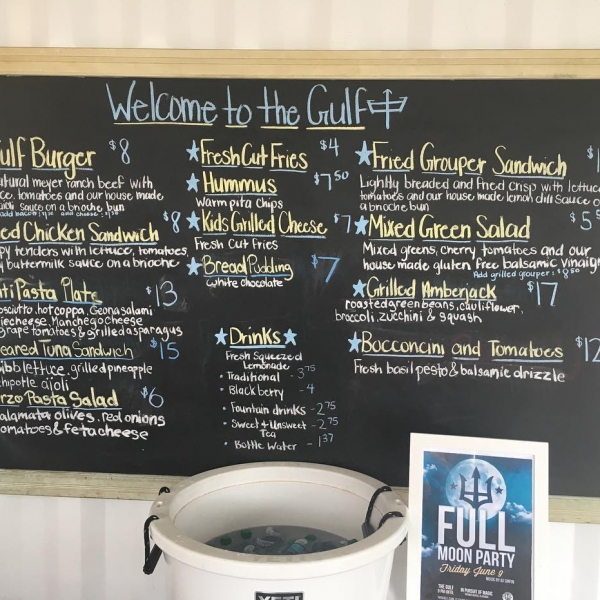 Welcome to the Gulf
Gulf Burger $8
natural meyer ranch beef with
tomatoes and our house made
sauce on a brioche bun
add bacon
and cheese
Fried Chicken Sandwich $8
tenders with lettuce, tomatoes,
buttermilk sauce on a brioche
AntiPasta Plate $13
hot coppa, Genoa salami
Manchego Cheese
grape tomatoes & grilled asparagus
Seared Tuna Sandwich $15
bibb lettuce, grilled pineapple
chipotle aioli
Orzo Pasta Salad $6
Kalamata olives, red onions
tomatoes & feta cheese
Fresh Cut Fries $4
Hummus $7.50
Warm pita chips
Kids Grilled Cheese $7
Fresh Cut Fries
Bread Pudding $7
White chocolate
Drinks
Fresh Squeezed
Lemonade
• Traditional - 3.75
• Blackberry - 4
• Fountain drinks - 2.75
• Sweet & Unsweet - 2.75
Tea
• Bottle Water - 1.37
Fried Grouper Sandwich $1
Lightly breaded and fried crisp with lettuce
tomatoes and our house made lemon dill sauce on
a brioche bun
Mixed Green Salad $5.5
Mixed greens, cherry tomatoes and our
house made gluten free balsamic vinaig
Add grilled grouper: $8.50
Grilled Amberjack $17
roasted green beans, cauliflower,
broccoli, zucchini & squash
Bocconcini and Tomatoes $12
Fresh basil pesto & balsamic drizzle
YETI
FULL
MOON PARTY
Friday June 9
THE GULF
IN PURSUIT OF MAGIC